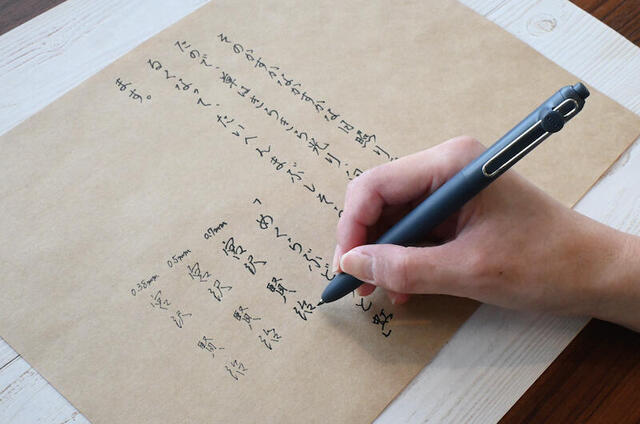 そのかすかなかすかな日照り
たので、草はきらきら光り、向
るくなって、たいへんまぶしそう
ます。
「めくらぶど と虹」
0.7mm 宮沢賢治
0.5mm 宮沢賢治
0.38mm 宮沢賢治